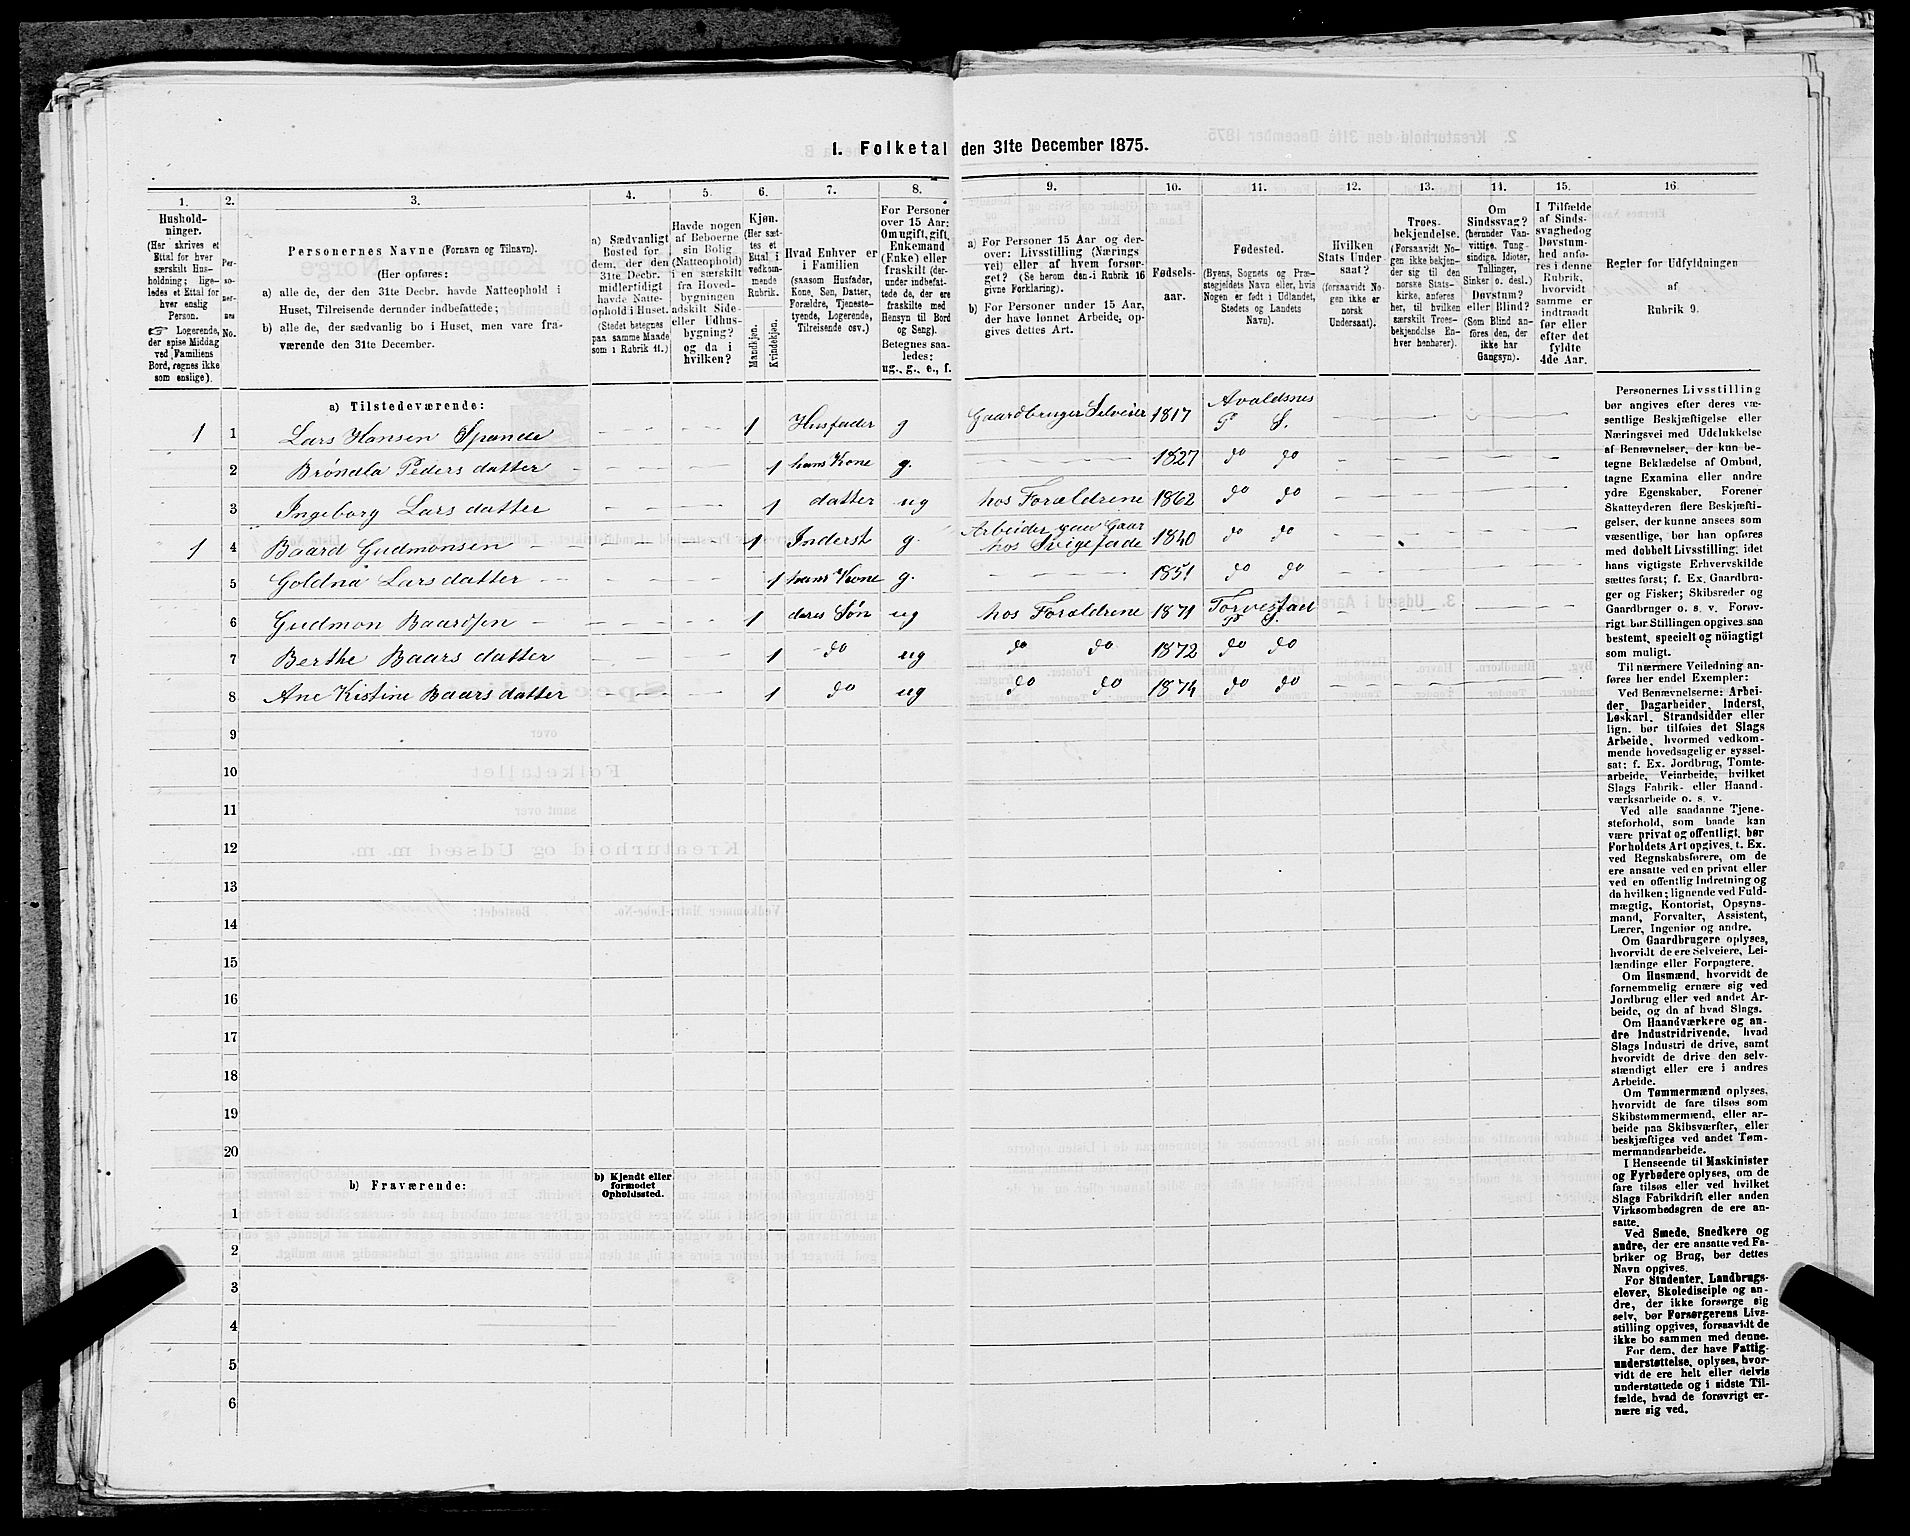 1. Folketal den 31te December 1875.
1. 2. 3. 4. 5. 6. 7. 8. 9. 10. 11. 12. 13. 14. 15. 16.
Hushold-
ninger.
(Her skrives et
Ettal for hver
særskilt Hus-
holdning; lige-
ledes et Ettal for
hver enslig
Person.
☞ Logerende,
der spise Middag
ved Familiens
Bord, regnes ikke
som enslige).
Per-
so-
ner-
nes
No.
Personernes Navne (Fornavn og Tilnavn).
(Her opføres:
a) alle de, der den 31te Decbr. havde Natteophold i
Huset, Tilreisende derunder indbefattede;
b) alle de, der sædvanlig bo i Huset, men vare fra-
værende den 31te December.
a) Sædvanligt
Bosted for
dem, der den
31te Decbr.
midlertidigt
havde Natte-
ophold i Huset.
(Stedet betegnes
paa samme Maade
som i Rubrik 11.)
Havde nogen
af Beboerne
sin Bolig
(Natteophold)
i en særskilt
fra Hoved-
bygningen
adskilt Side-
eller Udhus-
bygning?
og da i
hvilken?
Kjøn.
(Her sæt-
tes et
Ettal i
vedkom-
mende
Rubrik.
Mandkjøn.
Kvindekjøn.
Hvad Enhver er
i Familien
(saasom Husfader,
Kone, Søn, Datter,
Forældre, Tjeneste-
tyende, Logerende,
Tilreisende osv.)
For Personer
over 15 Aar:
Om ugift, gift,
Enkemand
(Enke) eller
fraskilt (der-
under indbefat-
tede de, der ere
fraskilte med
Hensyn til Bord
og Seng).
Betegnes saa-
ledes:
ug., g., e., f.
a) For Personer 15 Aar og der-
over: Livsstilling (Nærings
vei) eller af hvem forsør-
get? (Se herom den i Rubrik 16
givne Forklaring).
b) For Personer under 15 Aar,
der have lønnet Arbeide, op-
gives dettes Art.
Fødsels-
aar.
Fødested.
(Byens, Sognets og Præ-
stegjeldets Navn eller, hvis
Nogen er født i Udlandet,
Stedets og Landets
Navn).
Hvilken
Stats Under
saat?
(forsaavidt No
gen ikke er
norsk
Undersaat).
Troes-
bekjendelse.
(Forsaavidt No-
gen ikke bekjen-
der sig til den
norske Stats-
kirke, anføres
her, til hvilken
særskilt Troes-
bekjendelse En-
hver henhører).
Om
Sindssvag?
(herunder Van-
vittige, Tung-
sindige, Idioter,
Tullinger,
Sinker o. desl.)
Døvstum?
eller Blind?
(Som Blind an-
føres den, der
ikke har
Gangsyn).
I Tilfælde
af Sinds-
svaghed og
Døvstum-
hed anfø-
res i denne
Rubrik,
hvorvidt
samme er
indtraadt
før eller
efter det
fyldte
4de Aar.
Regler for Udfyldningen
af
Rubrik 9.
a) Tilstedeværende:
1 1 Lars Hansen Spande 1 Husfader g Gaardbruger Selveier 1817 Avaldsnes P S.
2 Brøndla Peders datter 1 hans Kone g. 1827 do do
3 Ingeborg Lars datter 1 datter ug hos Forældrene 1862 do do
1 4 Baard Gudmonsen 1 Inderst g. Arbeider paa Gaar
hos Svigefade 1840 do do
5 Goldna Lars datter 1 hans Kone g. 1851 do do
6 Gudmon Baardsen 1 deres Søn ug hos Forældrene 1871 Torvestad P S.
7 Berthe Baars datter 1 do ug do do 1872 do do
8 Ane Kistine Baars datter 1 do ug do do 1874 do do
9
10
11
12
13
14
15
16
17
18
19
20
b) Fraværende:
b) Kjendt eller
formodet
Opholdssted.
1
2
3
4
5
6
Personernes Livsstilling
bør angives efter deres væ-
sentlige Beskjæftigelse eller
Næringsvei med Udelukkelse
af Benævnelser, der kun be-
tegne Beklædelse af Ombud,
tagne Examina eller andre
ydre Egenskaber. Forener
Skatteyderen flere Beskjæfti-
gelser, der kunne ansees som
væsentlige, bør han opføres
med dobbelt Livsstilling, idet
hans vigtigste Erhvervskilde
sættes først; f. Ex. Gaardbru-
ger og Fisker; Skibsreder og
Gaardbruger o. s. v. Forøv-
rigt bør Stillingen opgives saa
bestemt, specielt og nøiagtigt
som muligt.
Til nærmere Veiledning an-
føres her endel Exempler:
Ved Benævnelserne: Arbei-
der, Dagarbeider, Inderst,
Løskarl, Strandsidder eller
lign. bør tilføies det Slags
Arbeide, hvormed vedkom-
mende hovedsagelig er syssel-
sat; f. Ex. Jordbrug, Tomte-
arbeide, Veiarbeide, hvilket
Slags Fabrik- eller Haand-
værksarbeide o. s. v.
Ved alle saadanne Tjene-
steforhold, som baade kan
være privat og offentligt, bør
Forholdets Art opgives, t. Ex.
ved Regnskabsførere, om de
ere ansatte ved en privat eller
ved en offentlig Indretning og
da hvilken; lignende ved Fuld-
mægtig, Kontorist, Opsyns-
mand, Forvalter, Assistent,
Lærer, Ingeniør og andre.
Om Gaardbrugere oplyses,
hvorvidt de ere Selveiere, Lei-
lændinge eller Forpagtere.
Om Husmænd, hvorvidt de
fornemmelig ernære sig ved
Jordbrug eller ved andet Ar-
beide, og da af hvad Slags.
Om Haandværkere og an-
dre Industridrivende, hvad
Slags Industri de drive, samt
hvorvidt de drive den selv-
stændigt eller ere i andres
Arbeide.
Om Tømmermænd oplyses,
hvorvidt de fare tilsøs som
Skibstømmermænd, eller ar-
beide paa Skibsværfter, eller
beskjæftiges ved andet Tøm-
mermandsarbeide.
I Henseende til Maskinister
og Fyrbødere oplyses, om de
fare tilsøs eller ved hvilket
Slags Fabrikdrift eller anden
Virksombedsgren de ere an-
satte.
Ved Smede, Snedkere og
andre, der ere ansatte ved Fa-
briker og Brug, bør dettes
Navn opgives.
For Studenter, Landbrugs-
elever, Skoledisciple og an-
dre, der ikke forsørge sig
selv, bør Forsørgerens Livs-
stilling opgives, forsaavidt de
ikke bo sammen med denne.
For dem, der have Fattig-
understøttelse, oplyses, hvor-
vidt de ere helt eller delvis
understøttede og i sidste Til-
fælde, hvad de forøvrigt er-
nære sig ved.